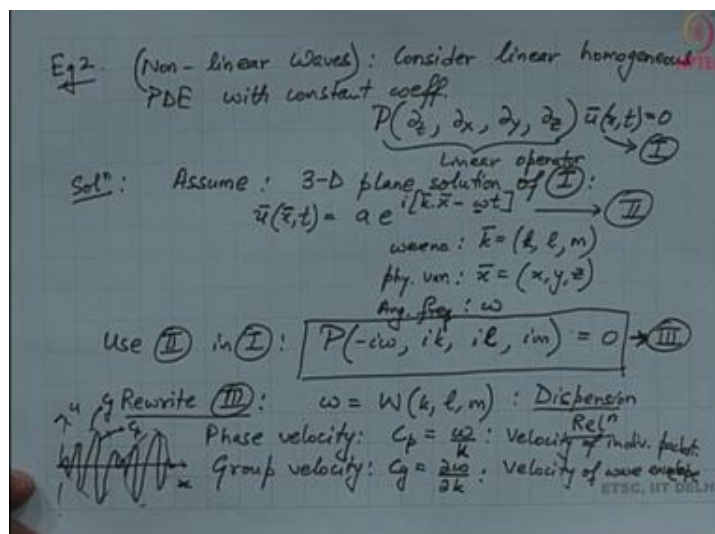 Eg 2. (Non-linear Waves): Consider linear homogeneous
PDE with constant coeff.
P(∂t, ∂x, ∂y, ∂z) ū(x,t)=0
Linear operator → I
Solⁿ: Assume: 3-D plane solution of I:
ū(x̄,t) = a e^{i[k̄.x̄ - ωt]} → II
waveno: k̄ = (k, l, m)
phy. var: x̄ = (x, y, z)
Ang. freq: ω
Use II in I: P(-iω, ik, il, im) = 0 → III
Rewrite III: ω = W(k, l, m): Dispension
Relⁿ
u
Cg
Cp
x
Phase velocity: Cp = ω/k: Velocity of indiv. packet.
Group velocity: Cg = ∂ω/∂k: Velocity of wave envelope
ETSC, IIT DELHI